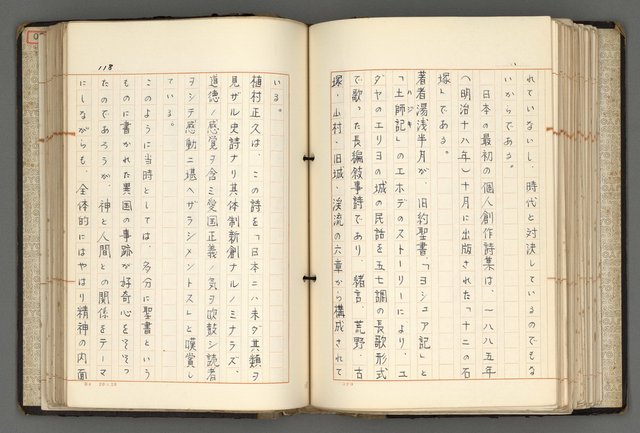 れていないし、時代と対決しているのでもな
いからである。
日本の最初の個人創作詩集は、一八八五年
(明治十八年)十月に出版された「十二の石
塚」である。
著者湯浅半月が、旧約聖書「ヨシュア記」と
「土師記」のエホデのストーリーにより、ユ
ダヤのエリヨの城の民話を五七調の長歌形式
で歌った長編叙事詩であり、緒言、荒野・古
塚・山村・旧城・渓流の六章から構成されて
118
いる。
植村正久は、この詩を「日本ニハ未ダ其類ヲ
見ザル史詩ナリ其体制新創ナルノミナラズ、
道徳ノ感覚ヲ含ミ愛国正義ノ気ヲ吹鼓シ読者
ヲシテ感動ニ堪ヘザラシメントス」と嘆賞し
ている。
このように当時としては、多分に聖書という
ものに書かれた異国の事跡が好奇心をそそっ
たのであろうが、神と人間との関係をテーマ
にしながらも、全体的にはやはり精神の内面